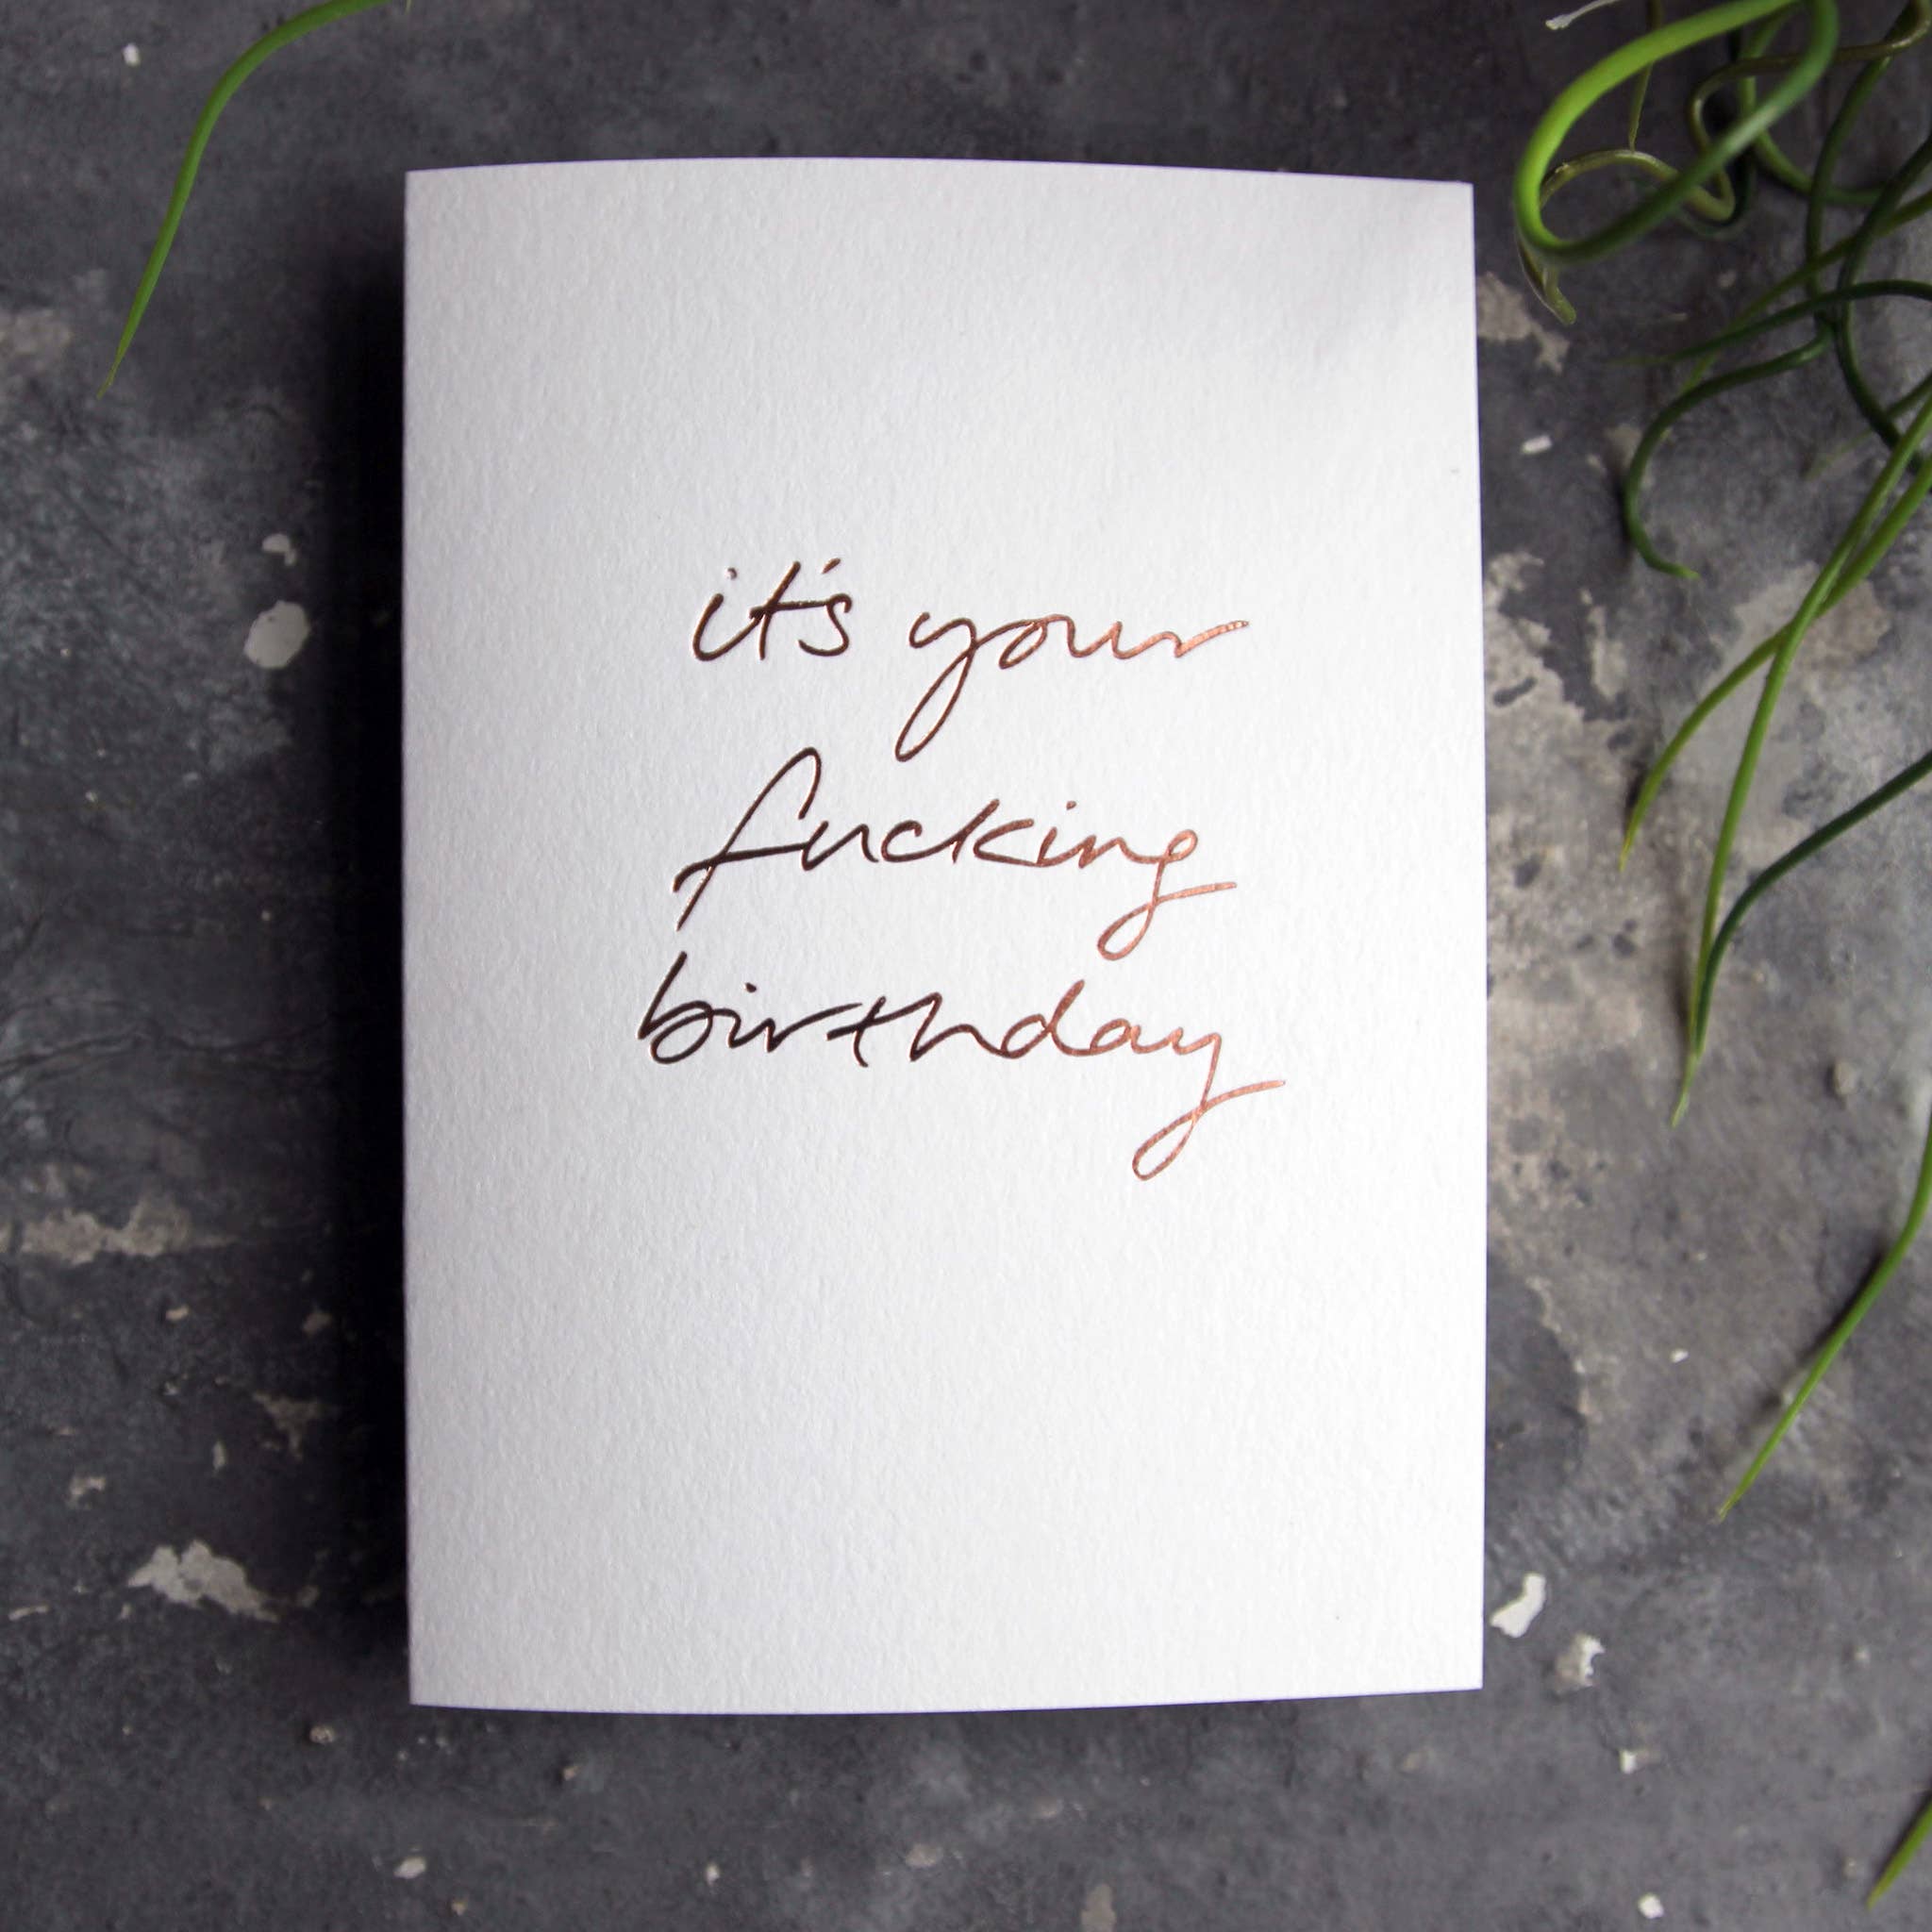 it's your
fucking
birthday